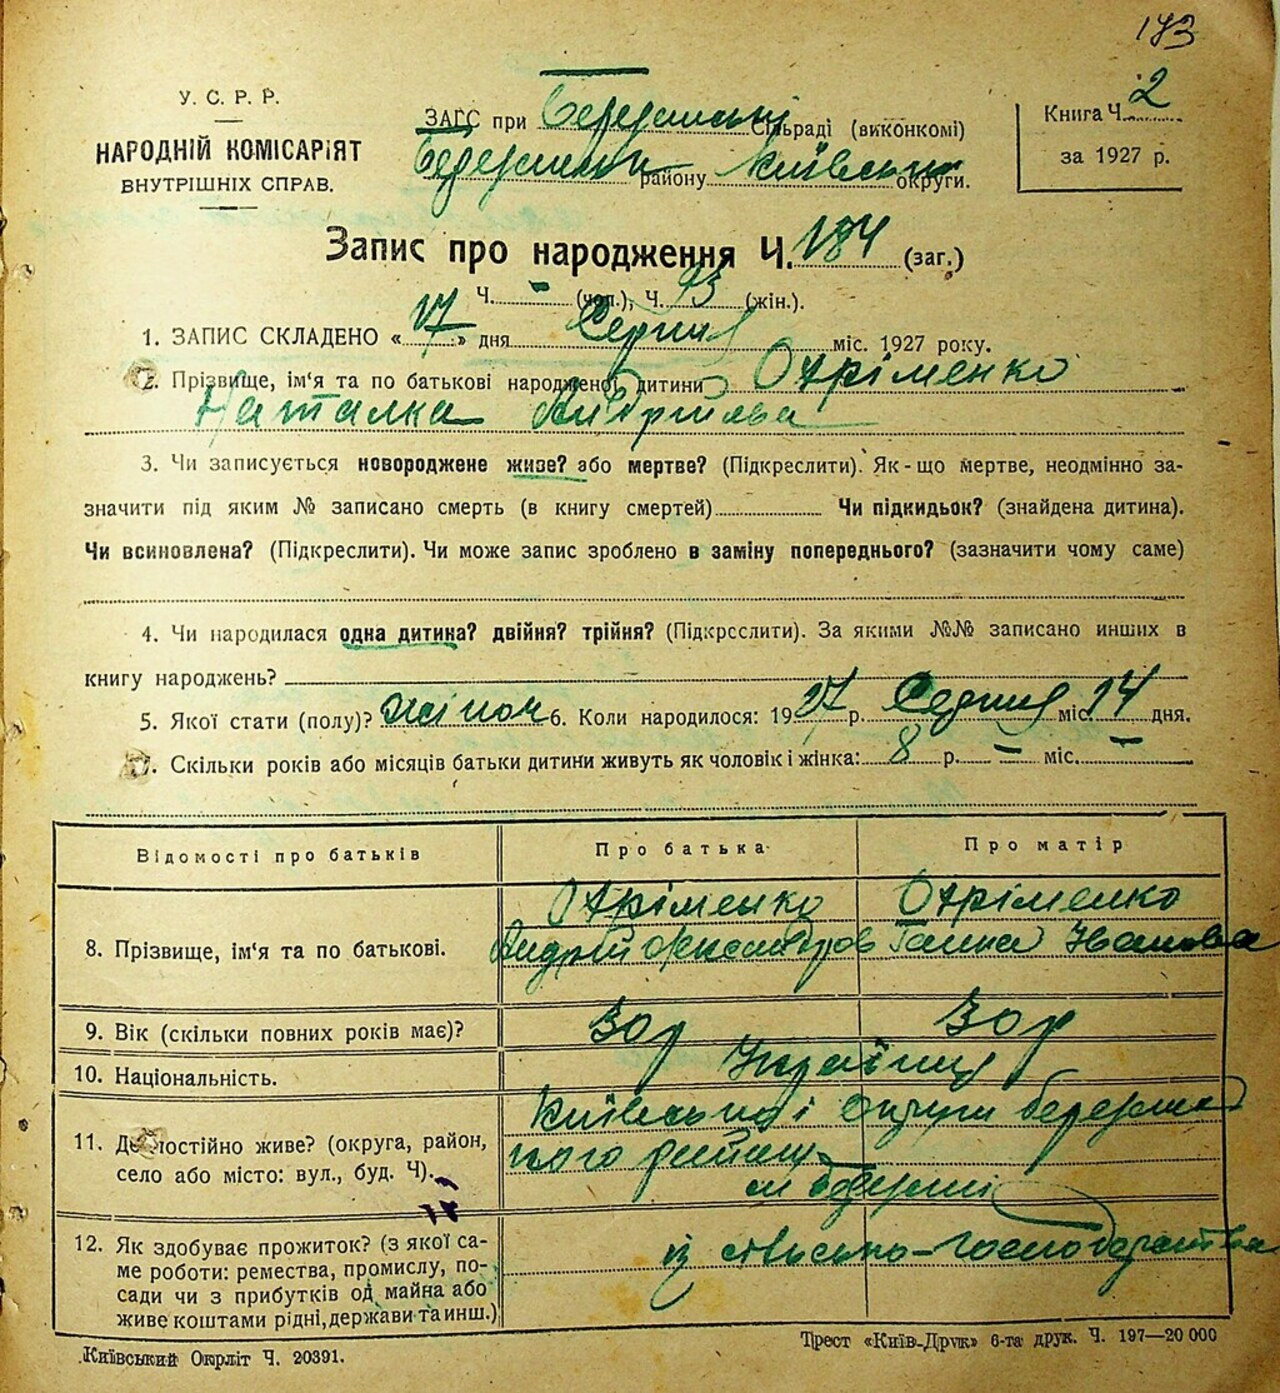 173
У. С. Р. Р.
НАРОДНІЙ КОМІСАРІЯТ
ВНУТРІШНІХ СПРАВ.
ЗАГС при Березанські Сільраді (виконкомі)
району Київськи округи.
Книга Ч. 2
за 1927 р.
Запис про народження Ч. 184 (заг.)
Ч. - (чол.), Ч. 93 (жін.).
1. ЗАПИС СКЛАДЕНО « 17 » дня Серпня міс. 1927 року.
2. Прізвище, ім'я та по батькові народженої дитини Охріменко
Наталка Андріївна
3. Чи записується новороджене живе? або мертве? (Підкреслити). Як-що мертве, неодмінно за-
значити під яким № записано смерть (в книгу смертей) Чи підкидьок? (знайдена дитина).
Чи всиновлена? (Підкреслити). Чи може запис зроблено в заміну попереднього? (зазначити чому саме)
4. Чи народилася одна дитина? двійня? трійня? (Підкреслити). За якими №№ записано инших в
книгу народжень? –
5. Якої стати (полу)? жіноч 6. Коли народилося: 1927 р. Серпня міс. 14 дня.
7. Скільки років або місяців батьки дитини живуть як чоловік і жінка: 8 р. – міс. –
Відомості про батьків
Про батька
Про матір
8. Прізвище, ім'я та по батькові.
Охріменко
Андрій Олександров
Охріменко
Ганна Іванівна
9. Вік (скільки повних років має)?
30 р
30 р
10. Національність.
Українці
11. Де постійно живе? (округа, район,
село або місто: вул., буд. Ч).
Київської округи Березансь
кого району
м Березані
12. Як здобуває прожиток? (з якої са-
ме роботи: ремества, промислу, по-
сади чи з прибутків од майна або
живе коштами рідні, держави та инш.)
із сільсько-господарства
Київський Окрліт Ч. 20391.
Трест «Київ-Друк» 6-та друк. Ч. 197—20 000